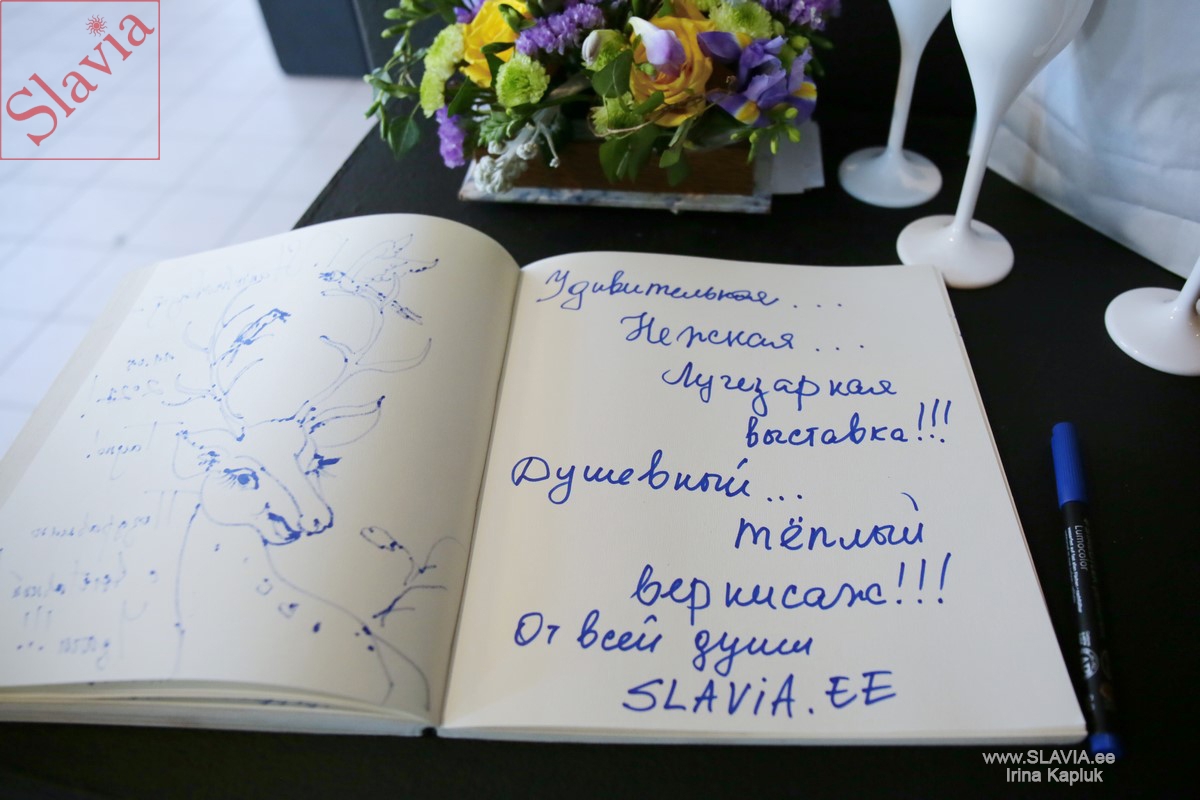 Slavia
Удивительная . . .
Нежная . . .
Лучезарная
выставка!!!
Душевный...
тёплый
вернисаж!!!
От всей души
SLAViA.EE
Lumocolor
www.SLAVIA.ee
Irina Kapluk